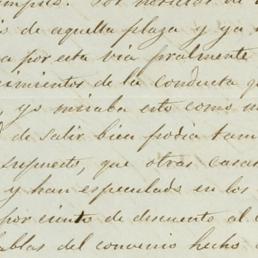 noticias de
s de aquella plaza y ya
a por esta via
cimientos de la conducta q
yo miraba esto como
de salir bien podia tam
supuesto, que otras casas
y han especulado en los
por ciento de descuento al
ablas del convenio hecho